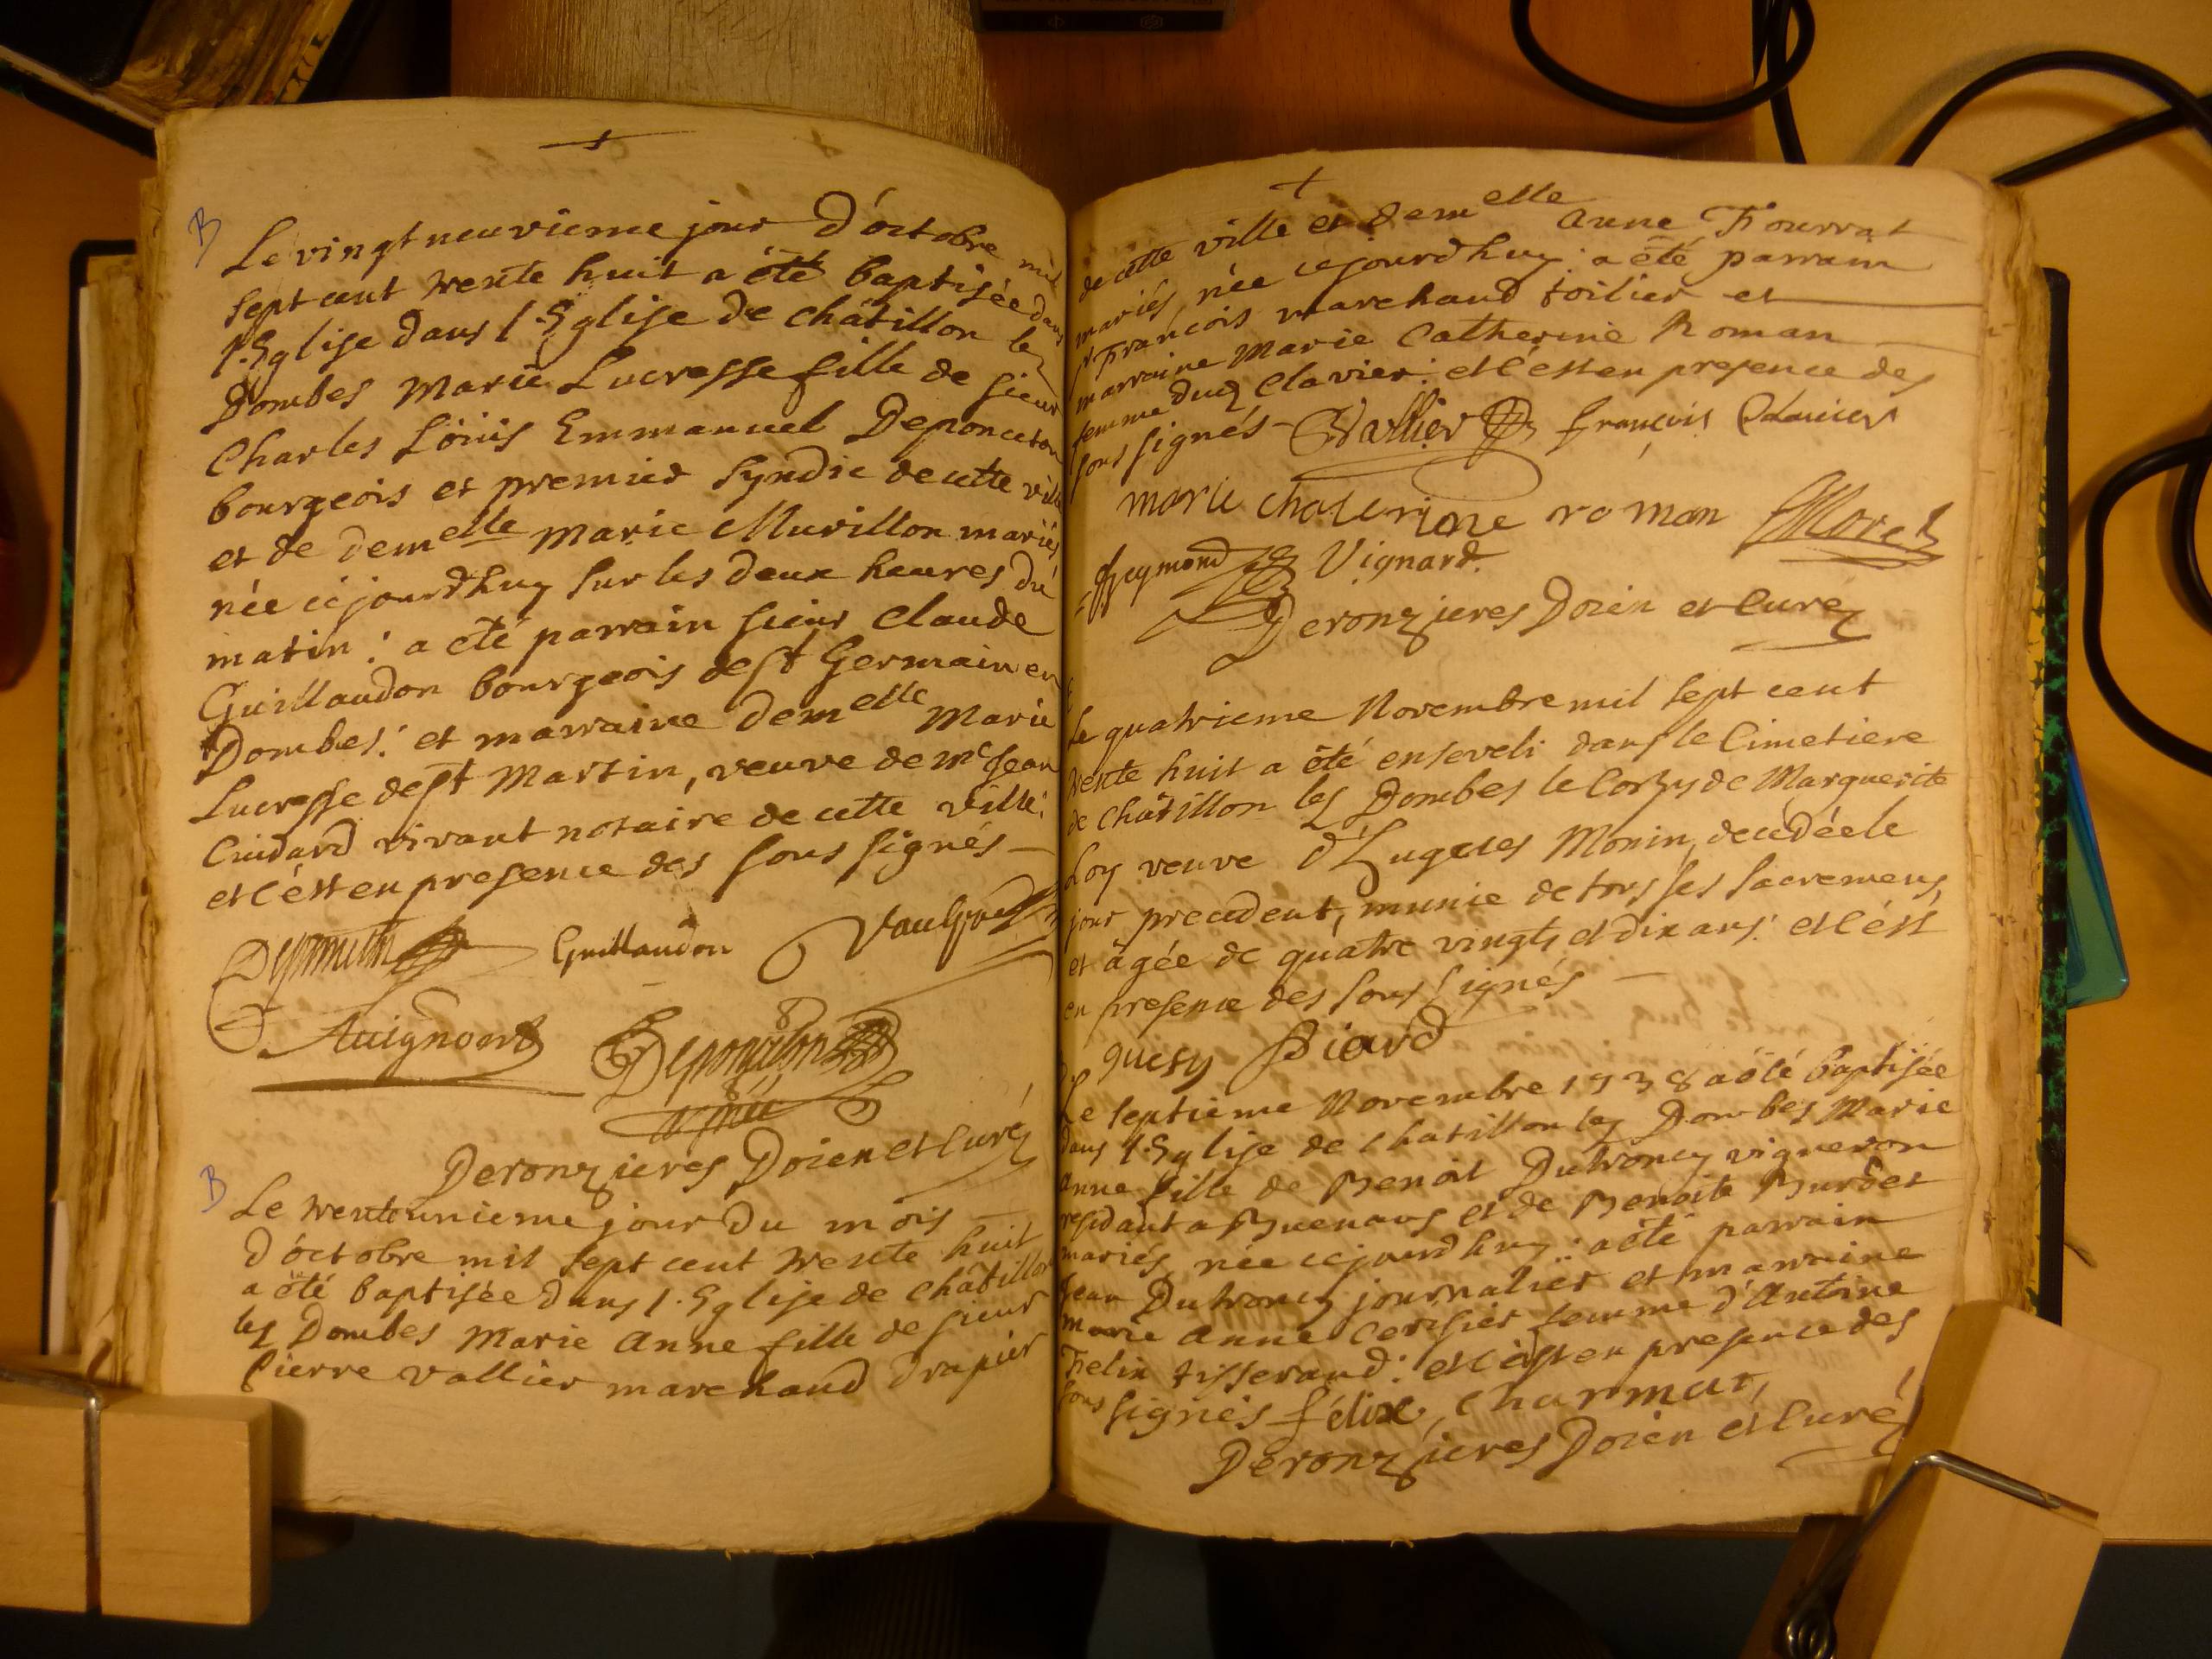 B
Le vingt neuvieme jour d'octobre mil
sept cent trente huit a été baptisée dans
l'Eglise dans l'Eglise de châtillon les
Dombes Marie Lucresse fille de sieur
Charles Loüis Emmanuel Deponceton
bourgeois et premier syndic de cette ville
et de demelle Marie Murillon mariés
née cejourdhuy sur les deux heures du
matin : a été parrain sieur Claude
Guillaudon bourgeois de st Germain en
Dombes : et marraine demelle Marie
Lucresse de st Martin, veuve de mr Jean
Cuidard vivant notaire de cette ville :
et c'est en presence des sous signés
Guillaudon
Auignont
Deponceton
Deronzieres Doien et Curé
B
Le trente unieme jour du mois
d'octobre mil sept cent trente huit
a été baptisée dans l'Eglise de châtillon
les Dombes Marie Anne fille de sieur
Pierre vallier marchand drapier
de cette ville et demelle Anne Fourrat
mariés, née cejourdhuy : a été parrain
sr François marchand toilier et
marraine Marie Catherine Roman
femme dud Clavier : et c'est en presence des
sous signés Vallier françois Clavier
marie chaterine roman Moret
Reymond Vignard
Deronzieres Doien et Curé
Le quatrieme Novembre mil sept cent
trente huit a été enseveli dans le Cimetiere
de châtillon les Dombes le Corps de Marguerite
Loy veuve d'Eugenes Monin, decedée le
jour precedent, munie de tous ses sacremens,
et âgée de quatre vingts et dix ans : et c'est
en presence des sous signés
guesy Piard
Le septieme Novembre 1738 a été baptisée
dans l'Eglise de chatillon les Dombes Marie
Anne fille de Benoit Dutroncy vigneron
residant a Buenans et de Benoite Burdet
mariés, née cejourdhuy : a été parrain
Jean Dutroncy journalier et marraine
marie Anne Cerisier femme d'Antoine
Felix tisserand : et c'est en presence des
sous signés félix, charmat,
Deronzieres Doien et Curé